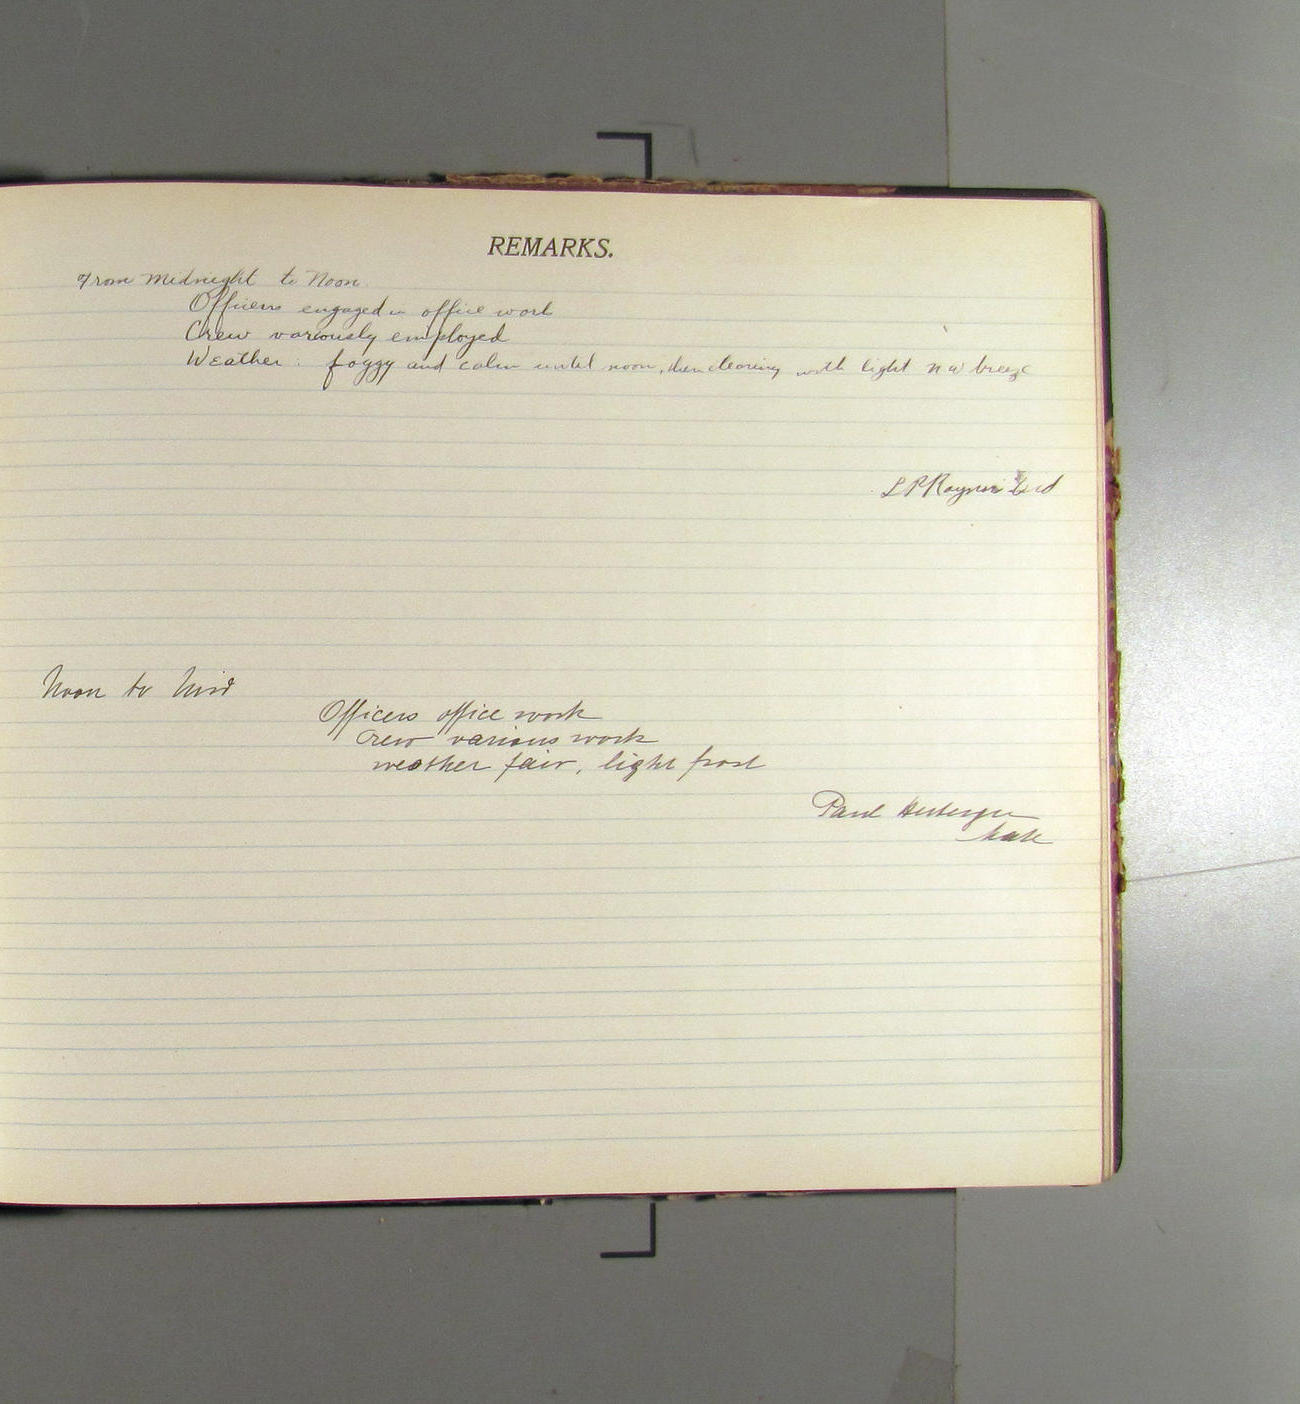 REMARKS.
From Midnight to Noon
Officers engaged in office work
Crew variously employed
Weather: foggy and calm until noon, then clearing with light NW breeze
L P Raynor
Noon to Mid
Officers office work
Crew various work
weather fair, light frost
Paul
Mate